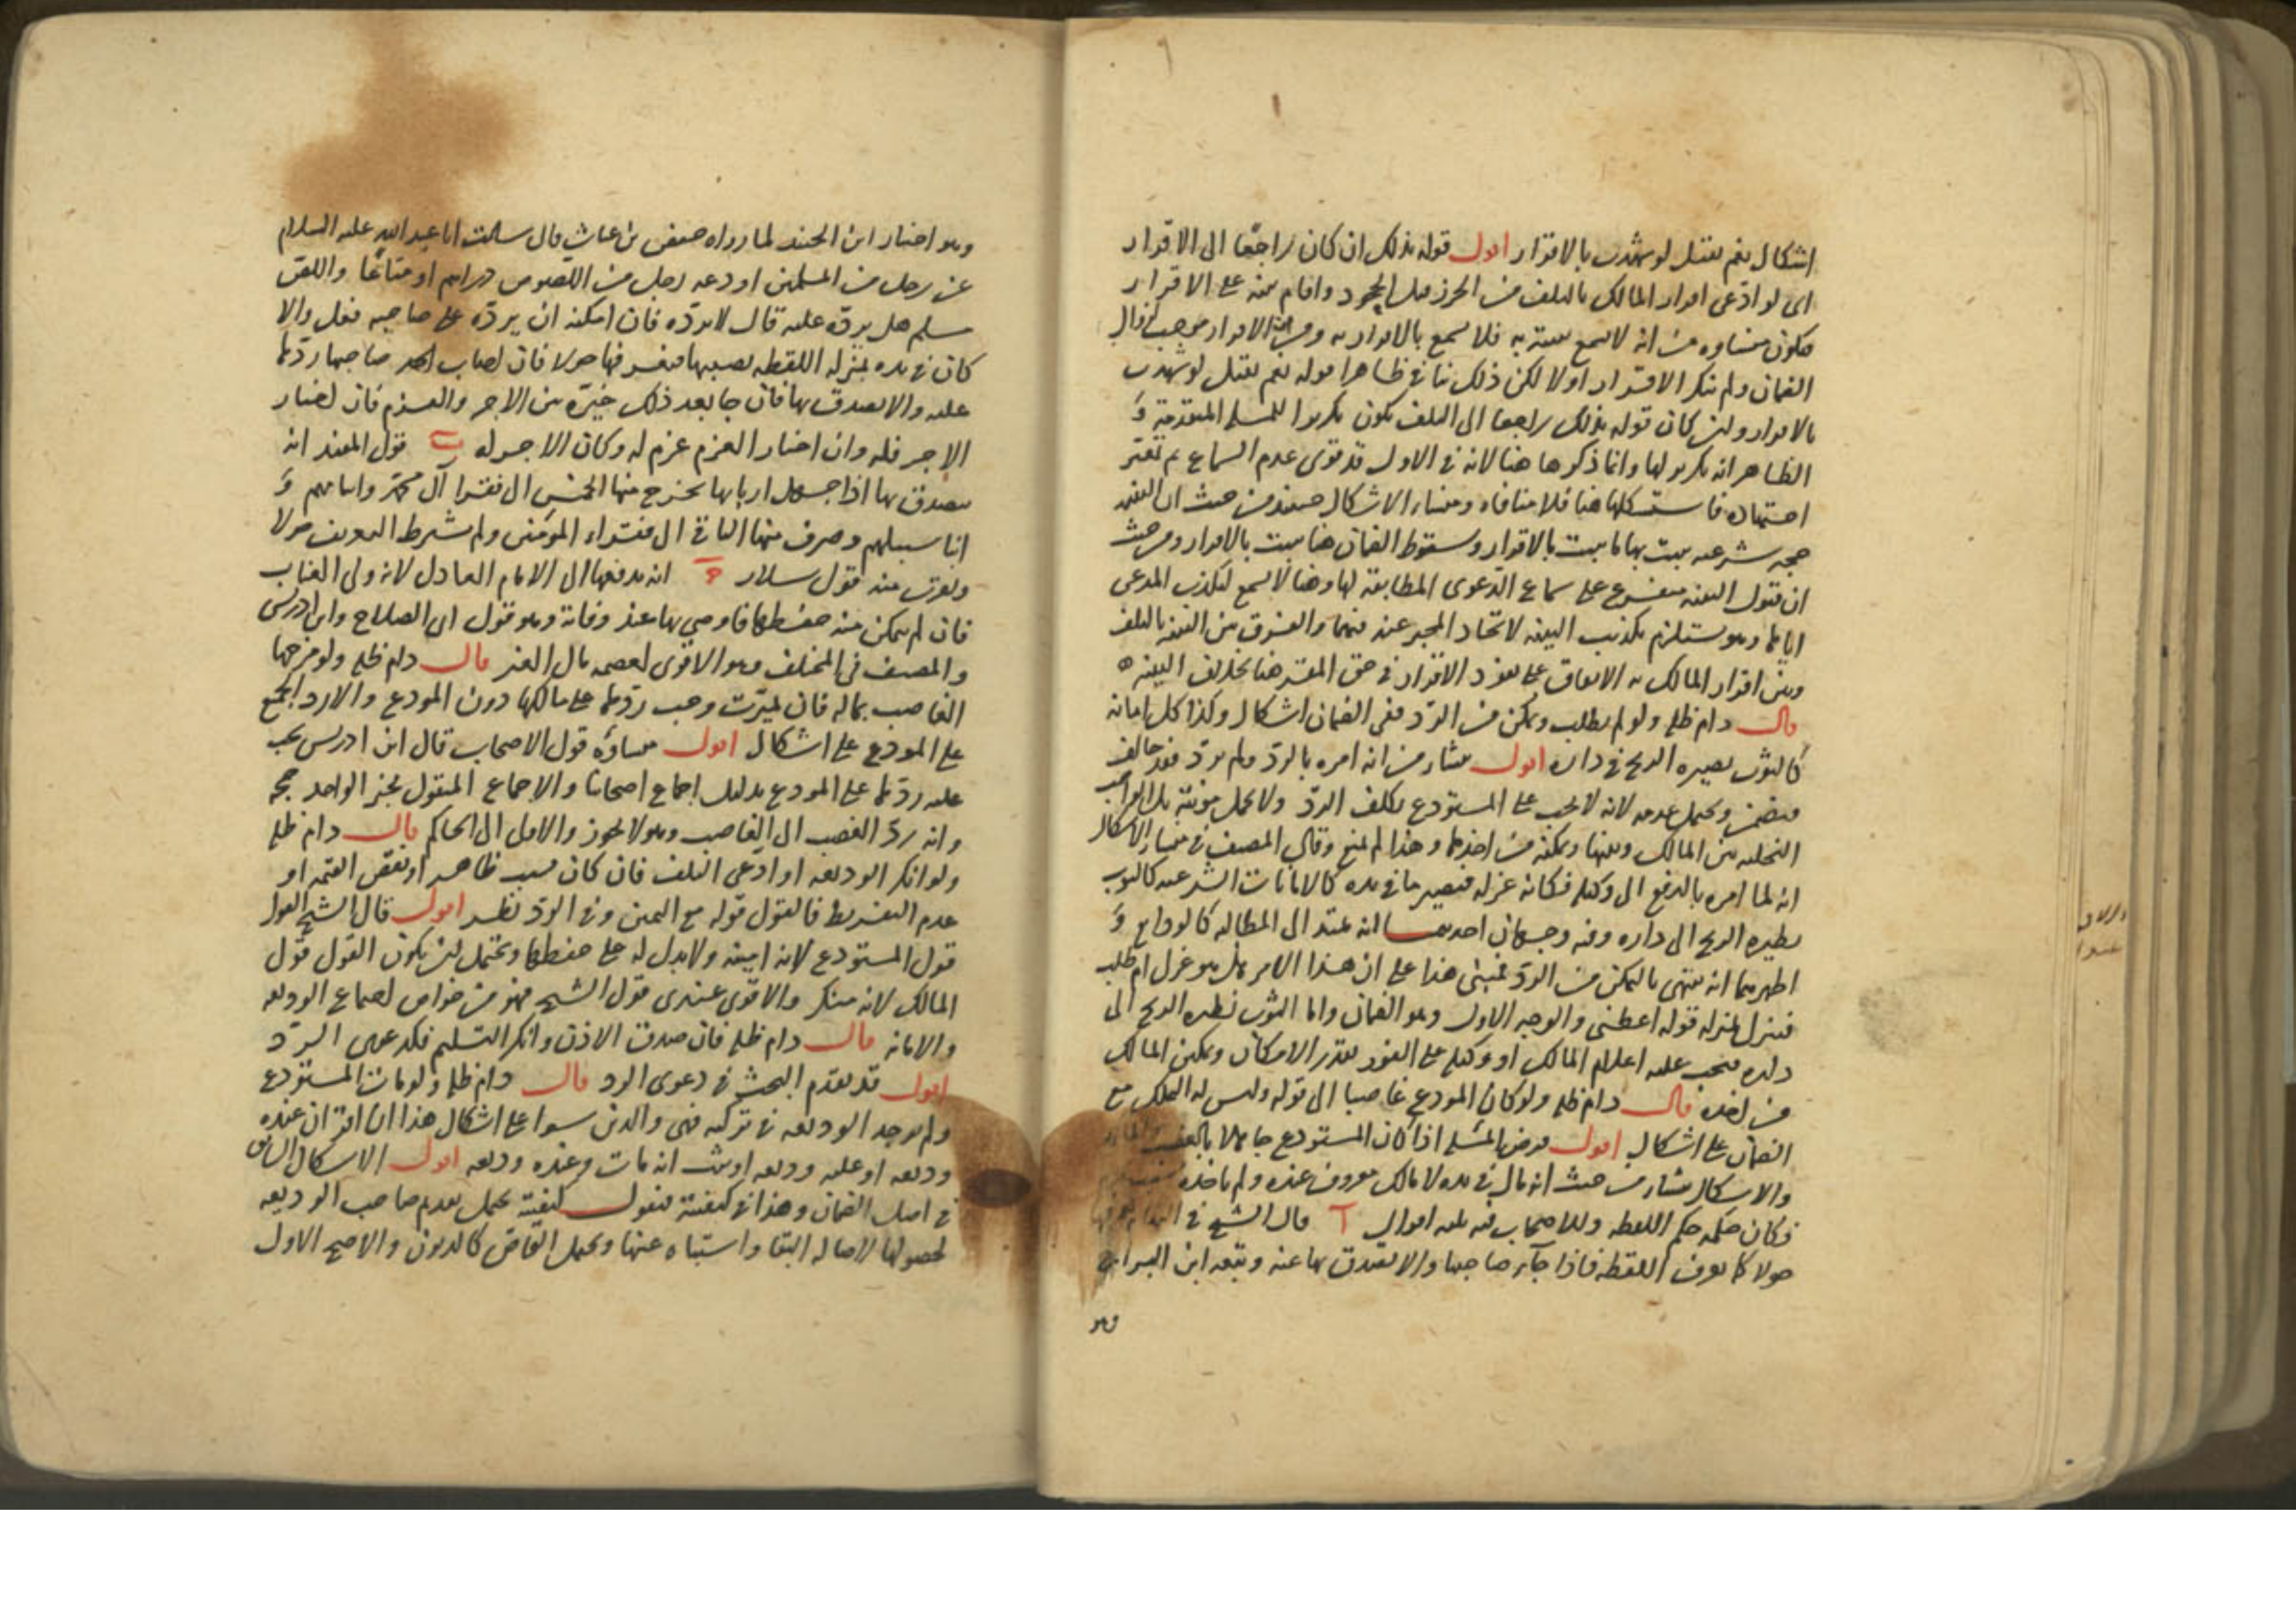 اشكال نعم تقبل لو شهدت بالاقرار اقول قوله بذلك ان كان راجعًا الى الاقرار
اى لو ادّعى اقرار المالك بالتلف من الحرز قبل الجحود واقام بينة على الاقرار
فيكون منشاوه من انه لا تسمع بينته به فلا تسمع بالاقرار به ومن ان الاقرار موجب لزوال
الضمان ولم ينكر الاقرار اولا لكن ذلك ينافي ظاهرا قوله نعم تقبل لو شهدت
بالاقرار ولئن كان قوله بذلك راجعا الى التلف يكون تكريرا للمسلة المتقدمة و
الظاهر انه تكرير لها وانما ذكرها هنا لانه في الاول قد قوى عدم السماع ثم تغير
اجتهاده فاستشكلها هنا فلا منافاه ومنشاء الاشكال حينئذ من حيث ان البينة
حجه شرعيه يثبت بها ما يثبت بالاقرار وسقوط الضمان هنا يثبت بالاقرار ومن حيث
ان قبول البينه متفرع على سماع الدّعوى المطابقة لها وهنا لا تسمع لتكذيب المدعى
اياها وهو يستلزم تكذيب البينه لاتحاد المخبر عنه فيهما والفرق بين البينه بالتلف
وبين اقرار المالك به الاتفاق على نفوذ الاقرار في حق المقر هنا بخلاف البينه
قال دام ظله ولو لم يطلب وتمكن من الردّ ففى الضمان اشكال وكذا كل امانة
كالثوب تصيره الريح في داره اقول منشاء من انه امره بالردّ ولم يردّ فقد خالف
فيضمن ويحتمل عدمه لانه لا يجب على المستودع تكلف الردّ ولا تحمل مونته بل الواجب
التخليه بين المالك وبينها وتمكنه من اخذها وهذا لم يمنع وقال المصنف في منشاء الاشكال
انه لما امره بالدفع الى وكيله فكانه عزله فيصير ما في يده كالامانات الشرعيه كالثوب
يطيره الريح الى داره وفيه وجهان احدهما انه يمتد الى المطالبه كالودايع و
اظهرهما انه ينتهى بالتمكن من الردّ فيبنى هذا على ان هذا الامر هل هو عزل ام طلب
فينزل منزله قوله اعطنى والوجه الاول وهو الضمان واما الثوب تطيره الريح الى
داره فيجب عليه اعلام المالك او وكيله على الفور بقدر الامكان وتمكين المالك
من اخذه قال دام ظله ولو كان المودع غاصبا الى قوله وليس له التملك مع
الضمان على اشكال اقول فرض المسئله اذا كان المستودع جاهلا بالغصب
والاشكال منشاء من حيث انه مال في يده لا مالك معروف عنده ولم ياخذه
فكان حكمه حكم اللقطه وللاصحاب فيه ثلثه اقوال آ قال الشيخ في النهايه يعرفها
حولا كما يعرف اللقطه فاذا جآء صاحبها والا تصدق بها عنه وتبعه ابن البراج
وهو
وهو اختيار ابن الجنيد لما رواه حفص بن غياث قال سالت ابا عبد الله عليه السلام
عن رجل من المسلمين اودعه رجل من اللصوص دراهم او متاعًا واللص
مسلم هل يردّه عليه قال لا يردّه فان امكنه ان يردّه على صاحبه فعل والا
كان في يده بمنزله اللقطه يصيبها فيعرفها حولا فان اصاب صاحبها ردّها
عليه والا تصدق بها فان جا بعد ذلك خيّره بين الاجر والغرم فان اختار
الاجر فله وان اختار الغرم غرم له وكان الاجر له ب قول المفيد انه
يتصدق بها اذا جهل اربابها يخرج منها الخمس الى فقرا آل محمّد وايتامهم و
ابنا سبيلهم وصرف منها الباقى الى فقراء المؤمنين ولم يشترط التعريف حولا
ويقرب منه قول سلار ج انه يدفعها الى الامام العادل لانه ولى الغياب
فان لم يتمكن منه حفظها فاوصى بها عند وفاته وهو قول ابى الصلاح وابن ادريس
والمصنف في المختلف وهو الاقوى لعصمه مال الغير قال دام ظله ولو مزجها
الغاصب بماله فان تميزت وجب ردّها على مالكها دون المودع والا رد الجميع
على المودع على اشكال اقول منشاؤه قول الاصحاب قال ابن ادريس يجب
عليه ردّها على المودع بدليل اجماع اصحابنا والاجماع المنقول بخبر الواحد حجه
وانه ردّ الغصب الى الغاصب وهو لا يجوز والاولى الى الحاكم قال دام ظله
ولو انكر الوديعه او ادّعى التلف فان كان بسبب ظاهر او نقص القيمه او
عدم التفريط فالقول قوله مع اليمين وفي الردّ نظر اقول قال الشيخ القول
قول المستودع لانه امينه ولا بدل له على حفظها ويحتمل ان يكون القول قول
المالك لانه منكر والاقوى عندى قول الشيخ فهو من خواص اجماع الوديعه
والامانه قال دام ظله فان صدق الاذن وانكر التسليم فكدعوى الردّ
اقول قد تقدم البحث في دعوى الرد قال دام ظله ولو مات المستودع
ولم توجد الوديعه في تركته فهى والدين سوا على اشكال هذا ان اقر ان عنده
وديعه او عليه وديعه او ثبت انه مات وعنده وديعه اقول الاشكال السابق
في اصل الضمان وهذا في كيفيته فنقول كيفيته يحتمل تقدم صاحب الوديعه
لحصولها لاصاله البقا واشتباه عينها ويحتمل التحاص كالديون والاصح الاول